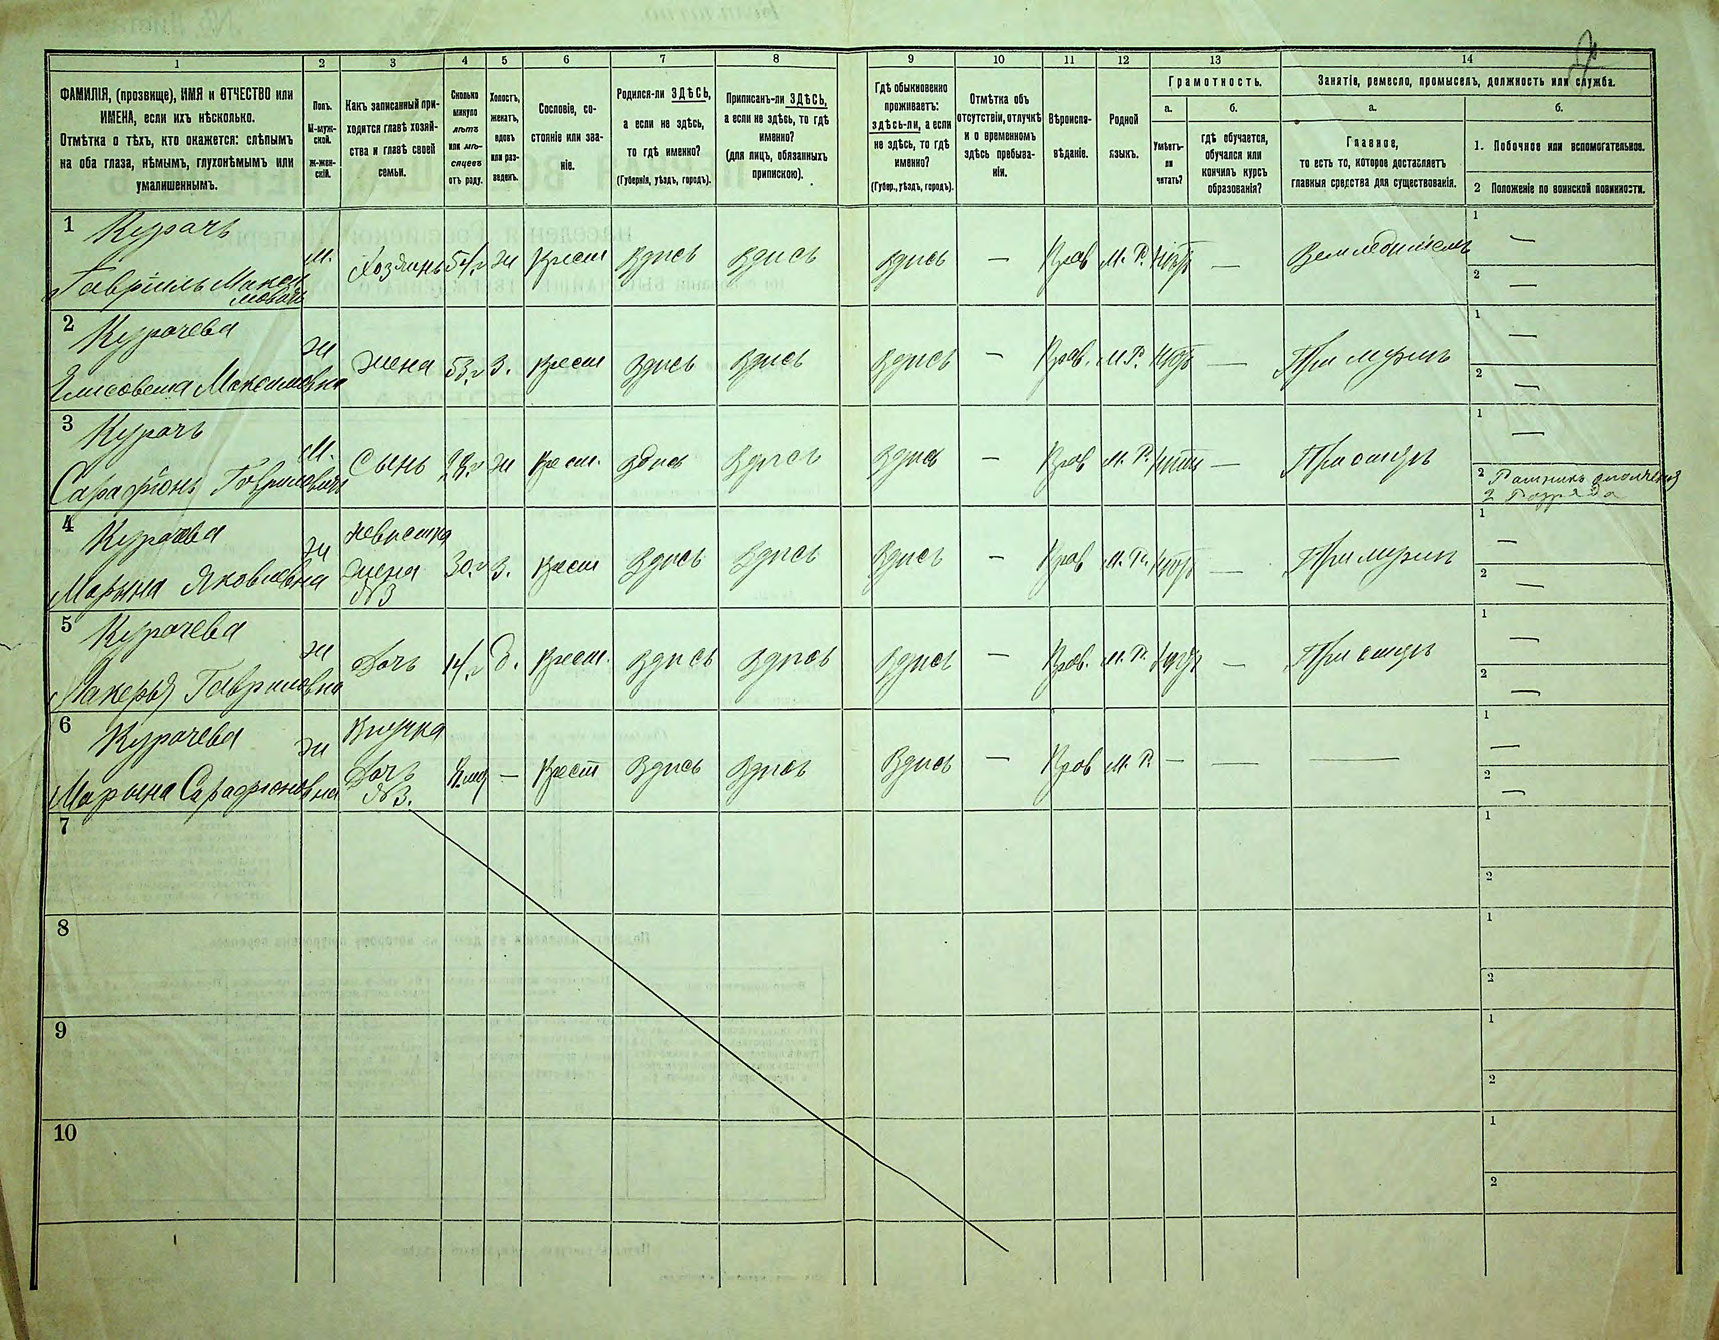 1 2 3 4 5 6 7 8 9 10 11 12 13 14
ФАМИЛІЯ, (прозвище), ИМЯ и ОТЧЕСТВО или
ИМЕНА, если ихъ нѣсколько.
Отмѣтка о тѣхъ, кто окажется: слѣпымъ
на оба глаза, нѣмымъ, глухонѣмымъ или
умалишеннымъ.
Полъ.
М-муж-
ской.
ж-жен-
скій.
Какъ записанный при-
ходится главѣ хозяй-
ства и главѣ своей
семьи.
Сколько
минуло
лѣтъ
или мѣ-
сяцевъ
отъ роду.
Холостъ,
женатъ,
вдовъ
или раз-
веденъ.
Сословіе, со-
стояніе или зва-
ніе.
Родился-ли ЗДѢСЬ,
а если не здѣсь,
то гдѣ именно?
(Губернія, уѣздъ, городъ).
Приписанъ-ли ЗДѢСЬ,
а если не здѣсь, то гдѣ
именно?
(для лицъ, обязанныхъ
припискою).
Гдѣ обыкновенно
проживаетъ:
здѣсь-ли, а если
не здѣсь, то гдѣ
именно?
(Губер., уѣздъ, городъ).
Отмѣтка объ
отсутствіи, отлучкѣ
и о временномъ
здѣсь пребыва-
ніи.
Вѣроиспо-
вѣданіе.
Родной
языкъ.
Грамотность.
а. б.
Умѣетъ-
ли
читать?
гдѣ обучается,
обучался или
кончилъ курсъ
образованія?
Занятіе, ремесло, промыселъ, должность или служба.
а. б.
Главное,
то есть то, которое доставляетъ
главныя средства для существованія.
1. Побочное или вспомогательное.
2 Положеніе по воинской повинности.
1 Курачъ
Гавріилъ Макси
мовичъ
м. Хозяинъ ж Крест Здись Здись Здись — Прав М. Р. — Земледѣлецъ
1 —
2 —
2 Курачева
Элисовета Максимовна
ж жена 53 г з. Крест Здись Здись Здись — Прав. М. Р. —
1 —
2 —
3 Курачъ
Сарафіонъ Гавриловичъ
м. сынъ ж Крест. Здись Здись Здись — Прав М. Р. — При отцѣ
1 —
2 Ратникъ ополченія
2 Разряда
4 Курачева
Марына Яковлевна
ж невистка
жена
№3
30 г з. Крест Здись Здись Здись — Прав М. Р. —
1 —
2 —
5 Курачева
Макерья Гавриловна
ж Дочь 14 г д. Крест. Здись Здись Здись — Прав. М. Р. — При отцѣ
1 —
2 —
6 Курачева
Марына Сарафионовна
ж Внучка
Дочь
№3.
— Крест Здись Здись Здись — Прав М. Р. — — —
1 —
2 —
7
1
2
8
1
2
9
1
2
10
1
2